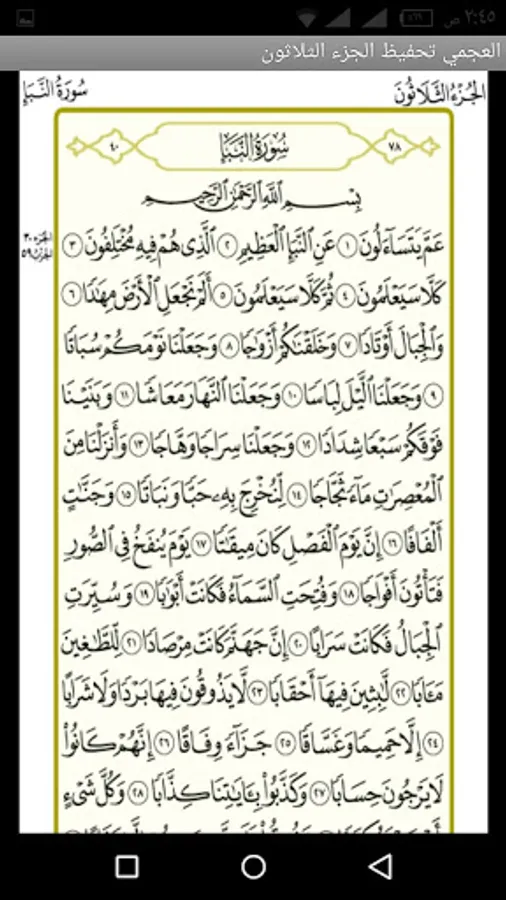 ٢:٤٥ ص ٦٩%
العجمي تحفيظ الجزء الثلاثون
الجُزْءُ الثَّلَاثُونَ سُورَةُ النَّبَإِ
٧٨ سُورَةُ النَّبَإِ ٤٠
بِسْمِ اللَّهِ الرَّحْمَٰنِ الرَّحِيمِ
الجزء ٣٠
الحزب ٥٩
عَمَّ يَتَسَاءَلُونَ ١ عَنِ النَّبَإِ الْعَظِيمِ ٢ الَّذِي هُمْ فِيهِ مُخْتَلِفُونَ ٣
كَلَّا سَيَعْلَمُونَ ٤ ثُمَّ كَلَّا سَيَعْلَمُونَ ٥ أَلَمْ نَجْعَلِ الْأَرْضَ مِهَٰدًا ٦
وَالْجِبَالَ أَوْتَادًا ٧ وَخَلَقْنَٰكُمْ أَزْوَٰجًا ٨ وَجَعَلْنَا نَوْمَكُمْ سُبَاتًا
٩ وَجَعَلْنَا الَّيْلَ لِبَاسًا ١٠ وَجَعَلْنَا النَّهَارَ مَعَاشًا ١١ وَبَنَيْنَا
فَوْقَكُمْ سَبْعًا شِدَادًا ١٢ وَجَعَلْنَا سِرَاجًا وَهَّاجًا ١٣ وَأَنزَلْنَا مِنَ
الْمُعْصِرَٰتِ مَآءً ثَجَّاجًا ١٤ لِّنُخْرِجَ بِهِۦ حَبًّا وَنَبَاتًا ١٥ وَجَنَّٰتٍ
أَلْفَافًا ١٦ إِنَّ يَوْمَ الْفَصْلِ كَانَ مِيقَٰتًا ١٧ يَوْمَ يُنفَخُ فِي الصُّورِ
فَتَأْتُونَ أَفْوَاجًا ١٨ وَفُتِحَتِ السَّمَآءُ فَكَانَتْ أَبْوَٰبًا ١٩ وَسُيِّرَتِ
الْجِبَالُ فَكَانَتْ سَرَابًا ٢٠ إِنَّ جَهَنَّمَ كَانَتْ مِرْصَادًا ٢١ لِّلطَّٰغِينَ
مَـَٔابًا ٢٢ لَّٰبِثِينَ فِيهَآ أَحْقَابًا ٢٣ لَّا يَذُوقُونَ فِيهَا بَرْدًا وَلَا شَرَابًا
٢٤ إِلَّا حَمِيمًا وَغَسَّاقًا ٢٥ جَزَآءً وِفَاقًا ٢٦ إِنَّهُمْ كَانُوا۟
لَا يَرْجُونَ حِسَابًا ٢٧ وَكَذَّبُوا۟ بِـَٔايَٰتِنَا كِذَّابًا ٢٨ وَكُلَّ شَيْءٍ